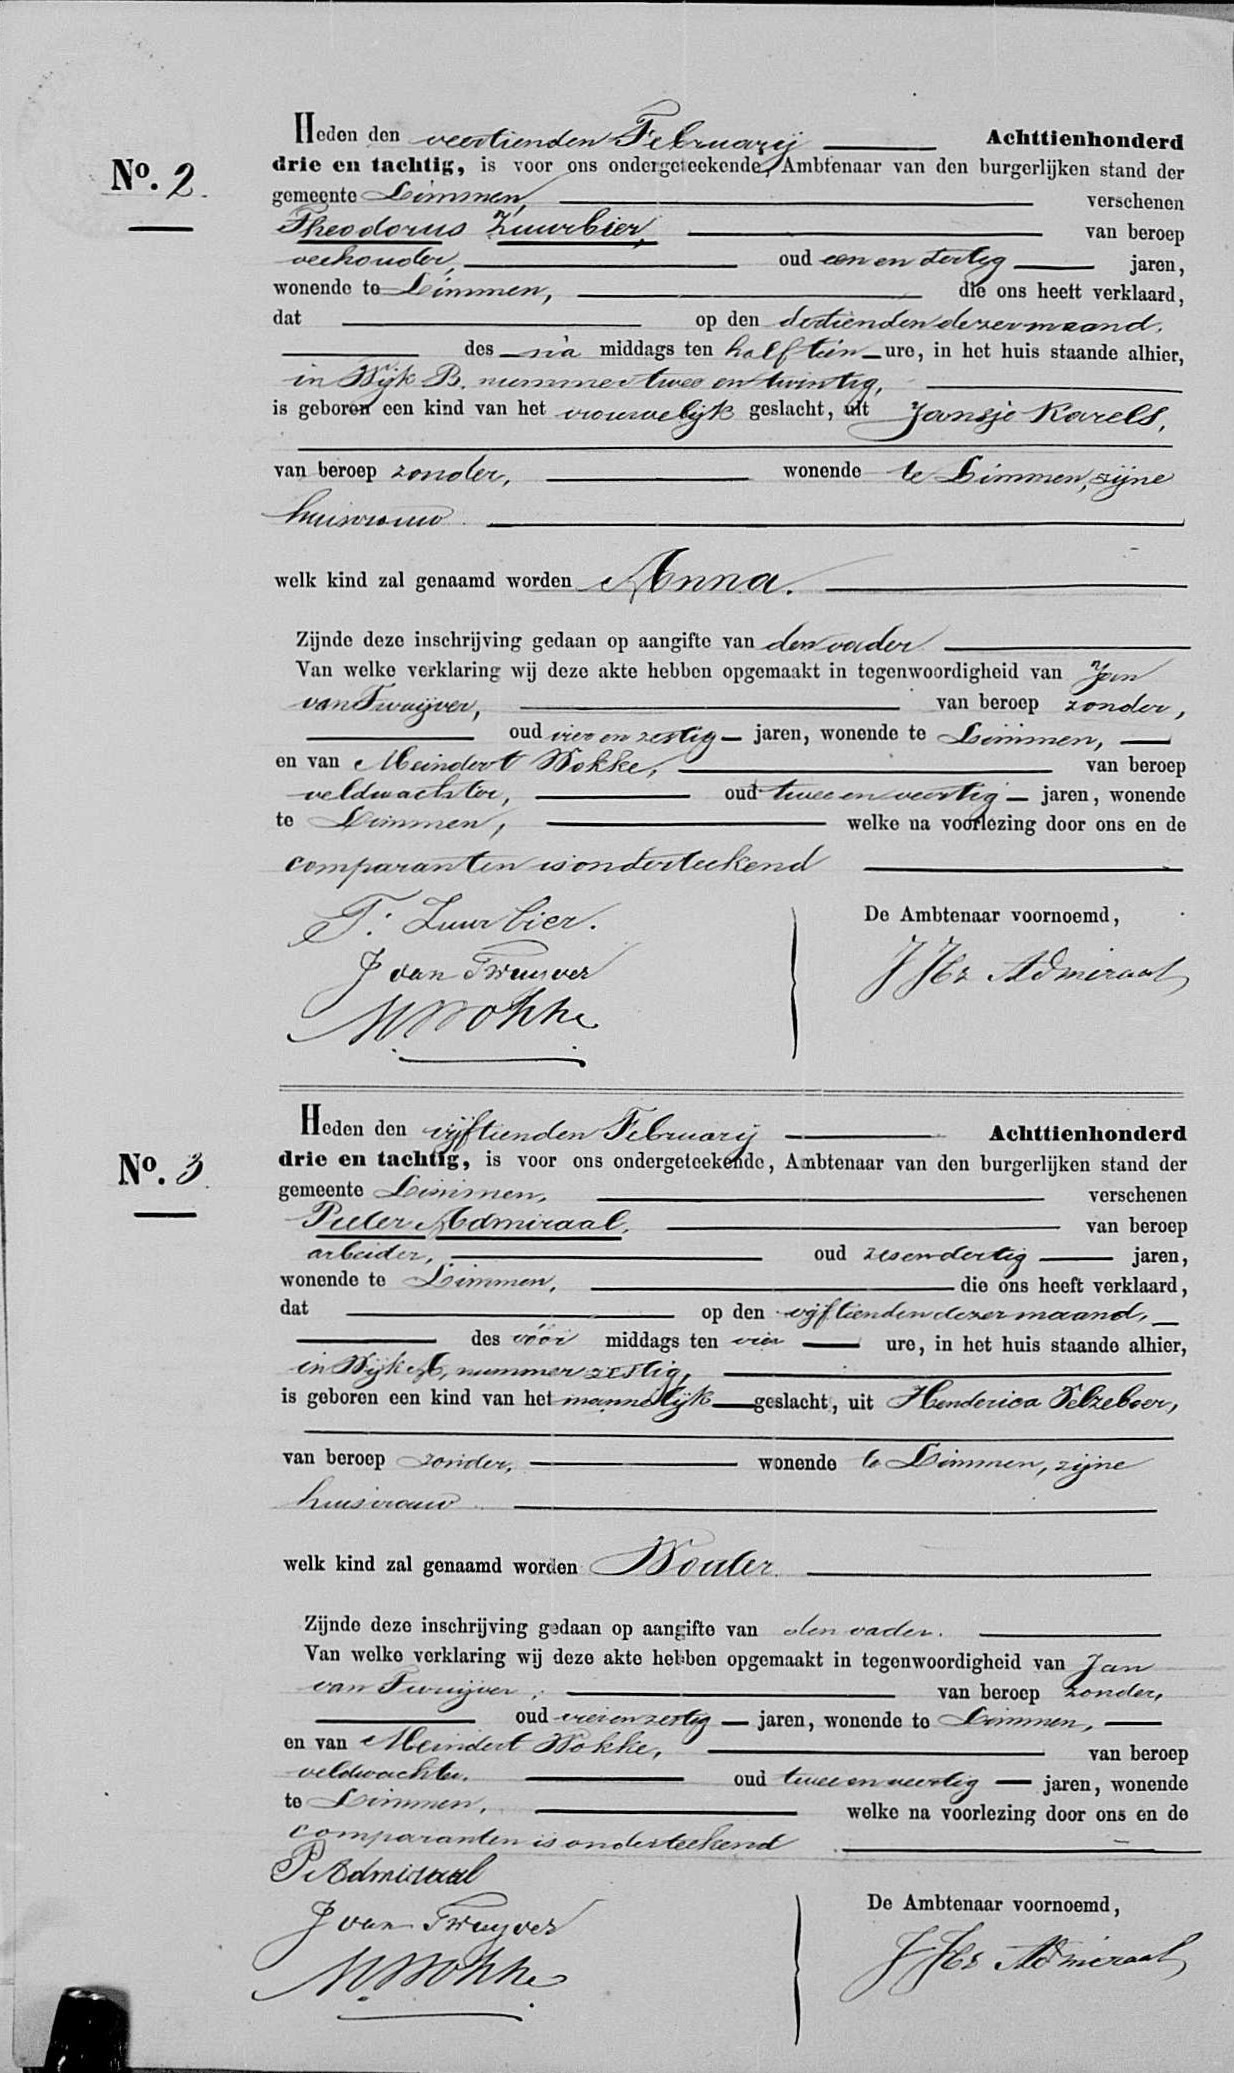 No. 2.
Heden den veertienden Februarij Achttienhonderd
drie en tachtig, is voor ons ondergeteekende, Ambtenaar van den burgerlijken stand der
gemeente Limmen, verschenen
Theodorus Zuurbier, van beroep
veehouder, oud een en dertig jaren,
wonende te Limmen, die ons heeft verklaard,
dat op den dertienden dezer maand,
des na middags ten half tien ure, in het huis staande alhier,
in Wijk B, nummer twee en twintig,
is geboren een kind van het vrouwelijk geslacht, uit Jansje Karels,
van beroep zonder, wonende te Limmen, zijne
huisvrouw
welk kind zal genaamd worden Anna.
Zijnde deze inschrijving gedaan op aangifte van den vader
Van welke verklaring wij deze akte hebben opgemaakt in tegenwoordigheid van Jan
van Twuijver, van beroep zonder,
oud vier en zestig jaren, wonende te Limmen,
en van Meindert Wokke, van beroep
veldwachter, oud twee en veertig jaren, wonende
te Limmen, welke na voorlezing door ons en de
comparanten is onderteekend
T. Zuurbier. De Ambtenaar voornoemd,
J van Twuyver J Jbz Admiraal
M Wokke
No. 3
Heden den vijftienden Februarij Achttienhonderd
drie en tachtig, is voor ons ondergeteekende, Ambtenaar van den burgerlijken stand der
gemeente Limmen, verschenen
Pieter Admiraal, van beroep
arbeider, oud zesendertig jaren,
wonende te Limmen, die ons heeft verklaard,
dat op den vijftienden dezer maand,
des vóór middags ten vier ure, in het huis staande alhier,
in Wijk A, nummer zestig,
is geboren een kind van het mannelijk geslacht, uit Henderica Pelzeboer,
van beroep zonder, wonende te Limmen, zijne
huisvrouw
welk kind zal genaamd worden Wouter
Zijnde deze inschrijving gedaan op aangifte van den vader.
Van welke verklaring wij deze akte hebben opgemaakt in tegenwoordigheid van Jan
van Twuijver, van beroep zonder,
oud vier en zestig jaren, wonende te Limmen,
en van Meindert Wokke, van beroep
veldwachter, oud twee en veertig jaren, wonende
te Limmen, welke na voorlezing door ons en de
comparanten is onderteekend
P Admiraal
J van Twuyver De Ambtenaar voornoemd,
M. Wokke J Jbz Admiraal